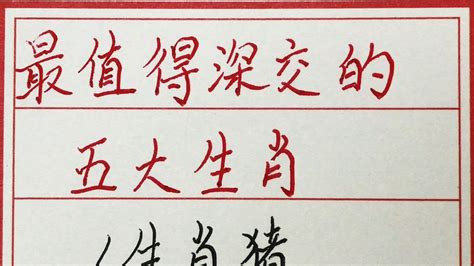 最值得深交的
五大生肖
1生肖猪